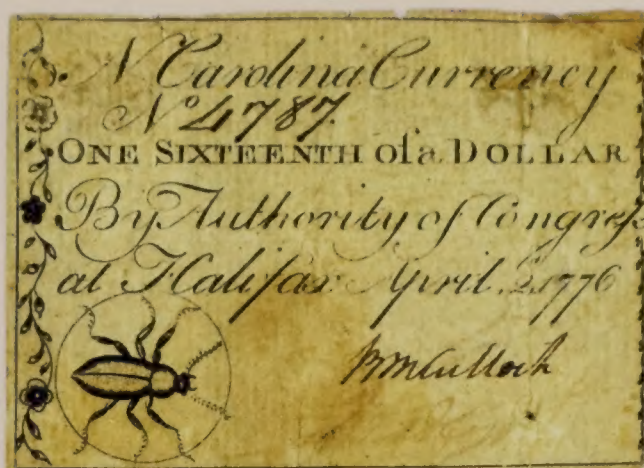 N Carolina Currency
No 4787.
ONE SIXTEENTH of a DOLLAR
By Authority of Congress
at Halifax April 2d, 1776